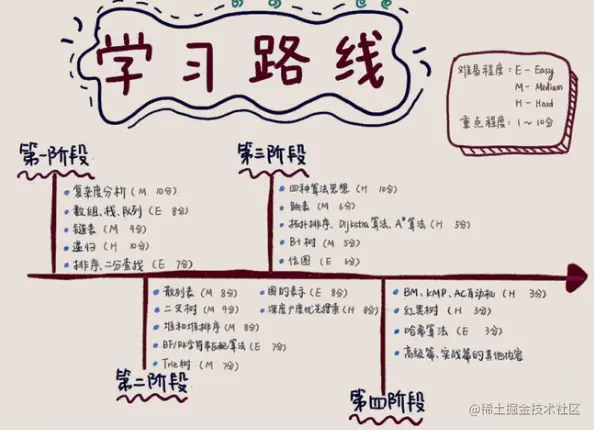 学习路线
难易程度：E - Easy
M - Medium
H - Hard
重点程度：1～10分
第一阶段
复杂度分析（M 10分）
数组、栈、队列（E 8分）
链表（M 9分）
递归（H 10分）
排序、二分查找（E 7分）
第二阶段
散列表（M 8分）
二叉树（M 9分）
堆和堆排序（M 8分）
BF/RK字符串匹配算法（E 7分）
Trie树（M 7分）
图的表示（E 8分）
深度广度优先搜索（H 8分）
第三阶段
四种算法思想（H 10分）
跳表（M 6分）
拓扑排序、Dijkstra算法、A*算法（H 5分）
B+树（M 5分）
位图（E 6分）
第四阶段
BM、KMP、AC自动机（H 3分）
红黑树（H 3分）
哈希算法（E 3分）
高级篇、实战篇的其他内容
@稀土掘金技术社区